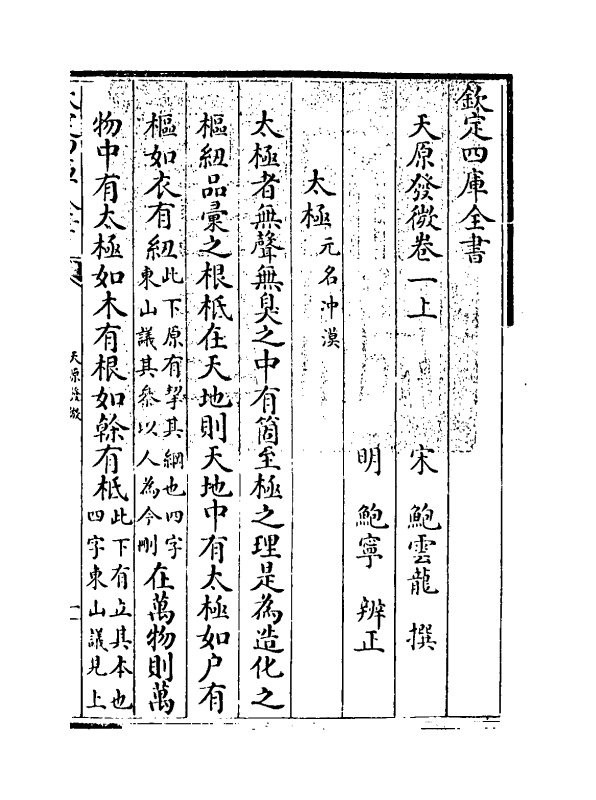 欽定四庫全書
天原發微卷一上
宋 鮑雲龍 撰
明 鮑寧 辨正
太極元名沖漠
太極者無聲無臭之中有箇至極之理是為造化之
樞紐品彙之根柢在天地則天地中有太極如户有
樞如衣有紐此下原有挈其綱也四字東山議其參以人為今刪在萬物則萬
物中有太極如木有根如榦有柢此下有立其本也四字東山議見上
天原發微